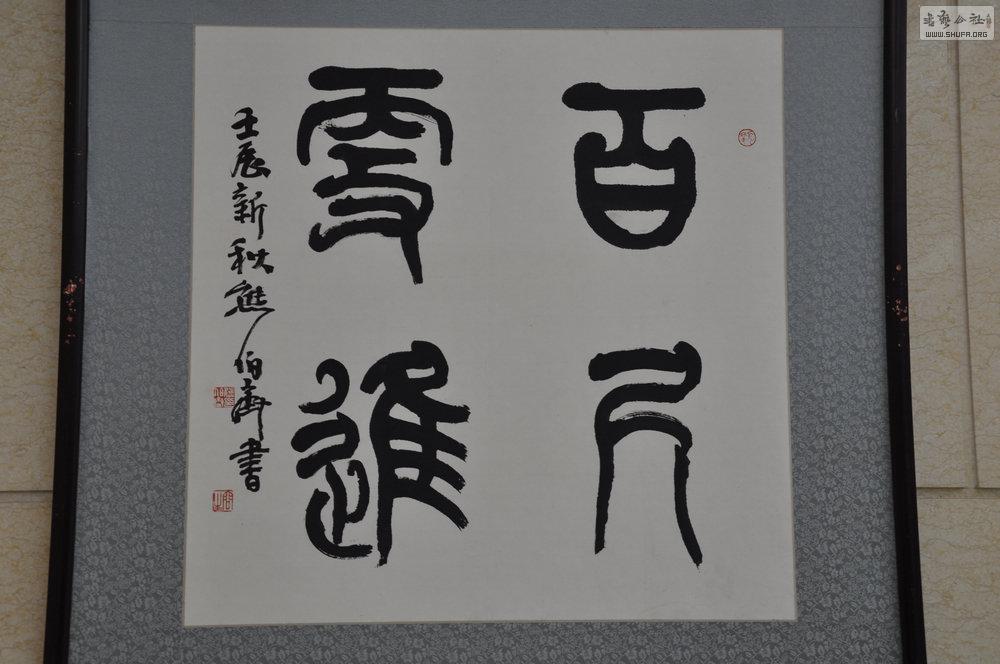 百尺
更進
壬辰新秋熊伯齊書
書藝公社
WWW.SHUFA.ORG